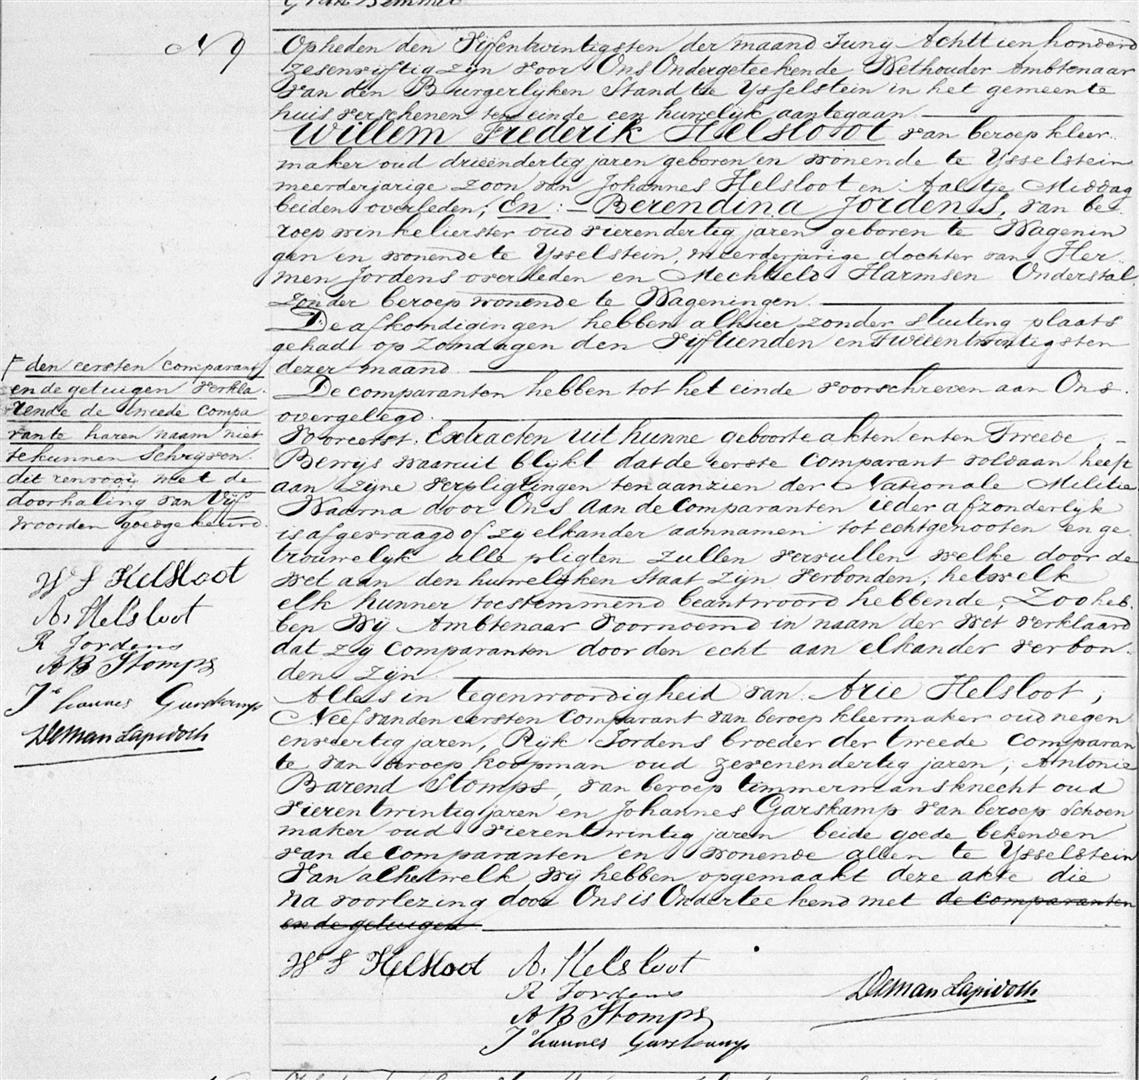 No 9
Opheden den Vijfentwintigsten der maand Junij Achttienhonderd
zesenvijftig zijn voor Ons Ondergeteekende Wethouder Ambtenaar
van den Burgerlyken Stand te Ysselstein in het gemeente
huis verschenen ten einde een huwelijk aantegaan.
Willem Frederik Helsloot van beroep kleer
maker oud drieëndertig jaren geboren en wonende te Ysselstein
meerderjarige zoon van Johannes Helsloot en Aaltje Middag
beiden overleden; En: Berendina Jordens, van be
roep winkelierster oud vierendertig jaren geboren te Wagenin
gen en wonende te Ysselstein, meerderjarige dochter van Her
men Jordens overleden en Mechteld Harmsen Onderstal
zonder beroep wonende te Wageningen.
De afkondigingen hebben alhier zonder stuiting plaats
gehad op Zondagen den Vijftienden en Tweeentwintigsten
dezer maand.
De comparanten hebben tot het einde voorschreven aan Ons
overgelegd.
Vooreerst. Extracten uit hunne geboorte akten en ten Tweede,
Bewijs waaruit blijkt dat de eerste Comparant voldaan heeft
aan zijne verpligtingen ten aanzien der Nationale Militie
Waarna door Ons aan de Comparanten ieder afzonderlijk
is afgevraagd of zy elkander aannamen tot echtgenooten en ge
trouwelyk alle pligten zullen vervullen welke door de
wet aan den huwelyken Staat zijn verbonden, hetwelk
elk hunner toestemmend beantwoord hebbende, Zoo heb
ben Wij Ambtenaar voornoemd in naam der Wet verklaard
dat zij Comparanten door den echt aan elkander verbon
den zijn.
Alles in tegenwoordigheid van Arie Helsloot,
Neef van den eersten Comparant van beroep kleermaker oud negen
envertig jaren, Rijk Jordens broeder der tweede comparan
te van beroep koopman oud zevenendertig jaren, Antonie
Barend Stomps, van beroep timmermansknecht oud
vierentwintig jaren en Johannes Garskamp van beroep Schoen
maker oud vierentwintig jaren beide goede bekenden
van de Comparanten en wonende allen te Ysselstein
Van al hetwelk Wij hebben opgemaakt deze akte die
na voorlezing door Ons is Onderteekend met de comparanten
en de getuigen
Wm F Helsloot
A. Helsloot
R Jordens
A B Stomps
Johannes Garskamp
den eersten comparant
en de getuigen verkla
rende de tweede compa
rante haren naam niet
te kunnen schryven.
dit renvooij met de
doorhaling van Vijf
woorden goedgekeurd.
Wm F Helsloot
A. Helsloot
R Jordens
A B Stomps
Johannes Garskamp